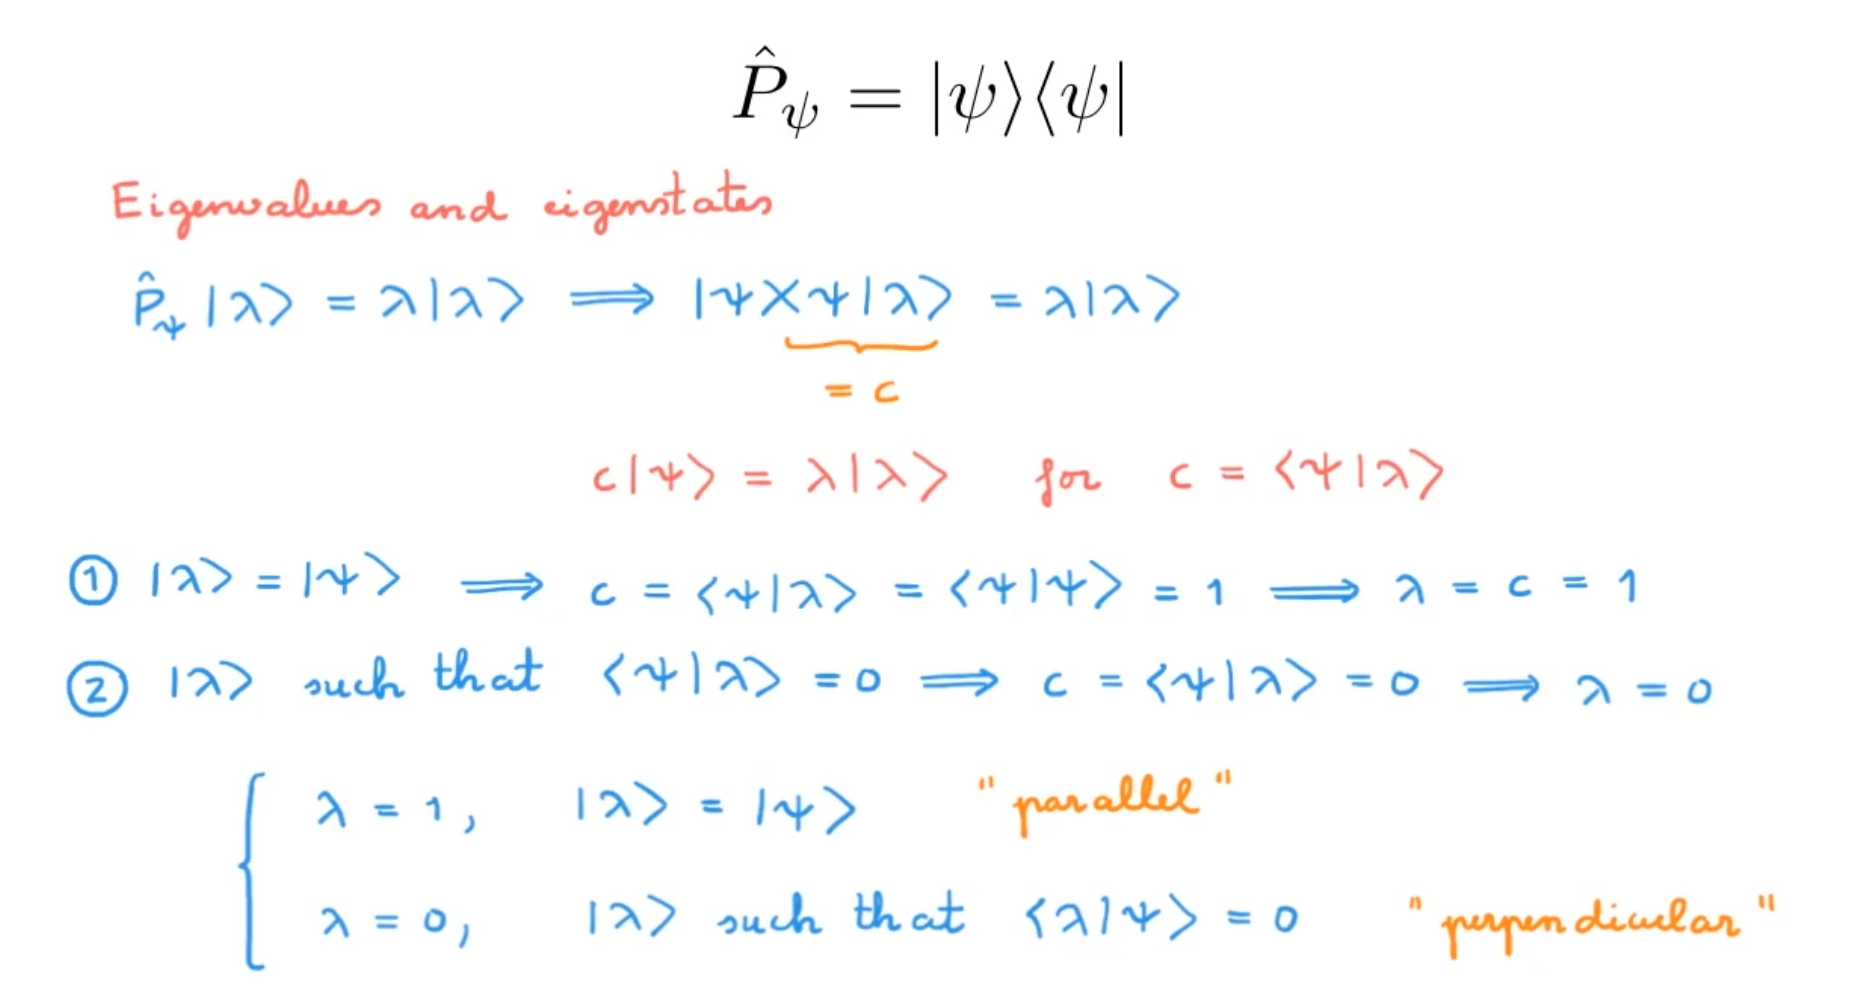 P̂_ψ = |ψ⟩⟨ψ|
Eigenvalues and eigenstates
P̂_ψ |λ⟩ = λ|λ⟩ ⟹ |ψ⟩⟨ψ|λ⟩ = λ|λ⟩
= c
c|ψ⟩ = λ|λ⟩ for c = ⟨ψ|λ⟩
① |λ⟩ = |ψ⟩ ⟹ c = ⟨ψ|λ⟩ = ⟨ψ|ψ⟩ = 1 ⟹ λ = c = 1
② |λ⟩ such that ⟨ψ|λ⟩ = 0 ⟹ c = ⟨ψ|λ⟩ = 0 ⟹ λ = 0
{ λ = 1, |λ⟩ = |ψ⟩ "parallel"
λ = 0, |λ⟩ such that ⟨λ|ψ⟩ = 0 "perpendicular"